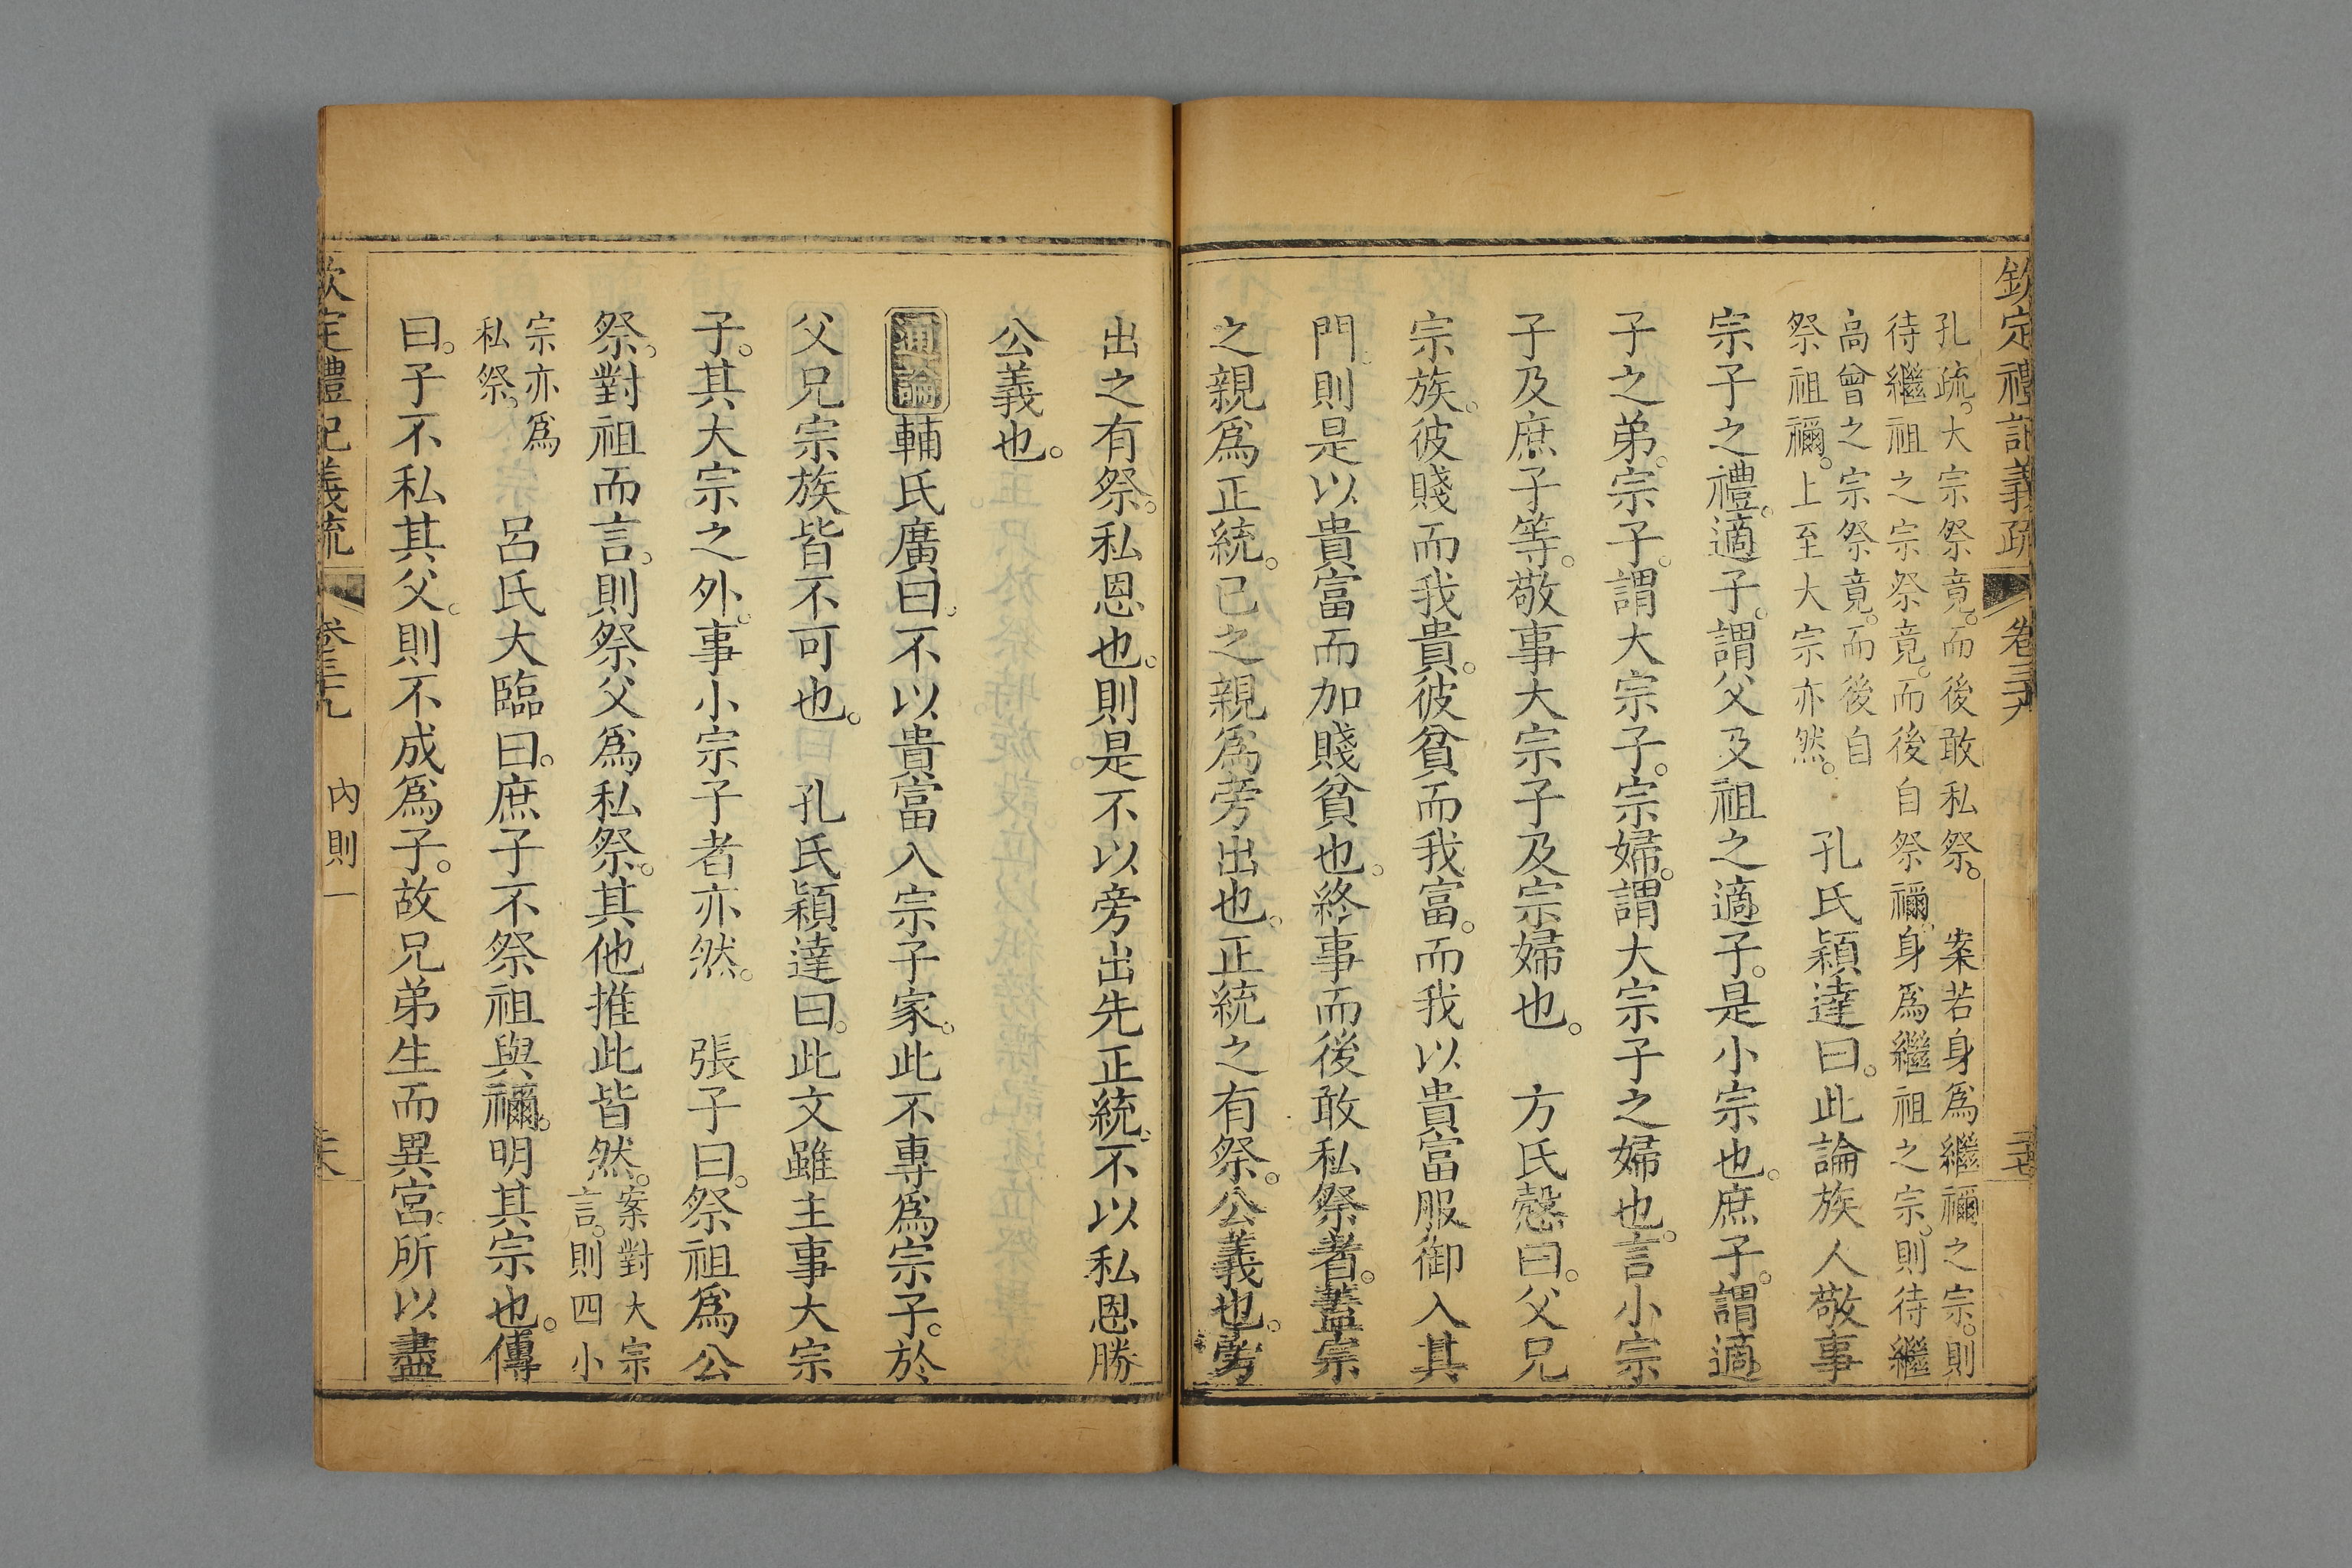 欽定禮記義疏 卷三十九
孔疏。大宗祭竟。而後敢私祭。 案若身爲繼禰之宗。則
待繼祖之宗祭竟。而後自祭禰。身爲繼祖之宗。則待繼
高曾之宗祭竟。而後自
祭祖禰。上至大宗亦然。
孔氏穎達曰。此論族人敬事
宗子之禮。適子。謂父及祖之適子。是小宗也。庶子。謂適
子之弟。宗子。謂大宗子。宗婦。謂大宗子之婦也。言小宗
子及庶子等。敬事大宗子及宗婦也。 方氏慤曰。父兄
宗族。彼賤而我貴。彼貧而我富。而我以貴富服御入其
門。則是以貴富而加賤貧也。終事而後敢私祭者。蓋宗
之親爲正統。已之親爲旁出也。正統之有祭。公義也。旁
出之有祭。私恩也。則是不以旁出先正統。不以私恩勝
公義也。
通論 輔氏廣曰。不以貴富入宗子家。此不專爲宗子。於
父兄宗族皆不可也。 孔氏穎達曰。此文雖主事大宗
子。其大宗之外。事小宗子者亦然。 張子曰。祭祖爲公
祭。對祖而言。則祭父爲私祭。其他推此皆然。
案對大宗
言。則四小
宗亦爲
私祭。
呂氏大臨曰。庶子不祭祖與禰。明其宗也。傳
曰。子不私其父。則不成爲子。故兄弟生而異宮。所以盡
欽定禮記義疏 卷三十九 內則一